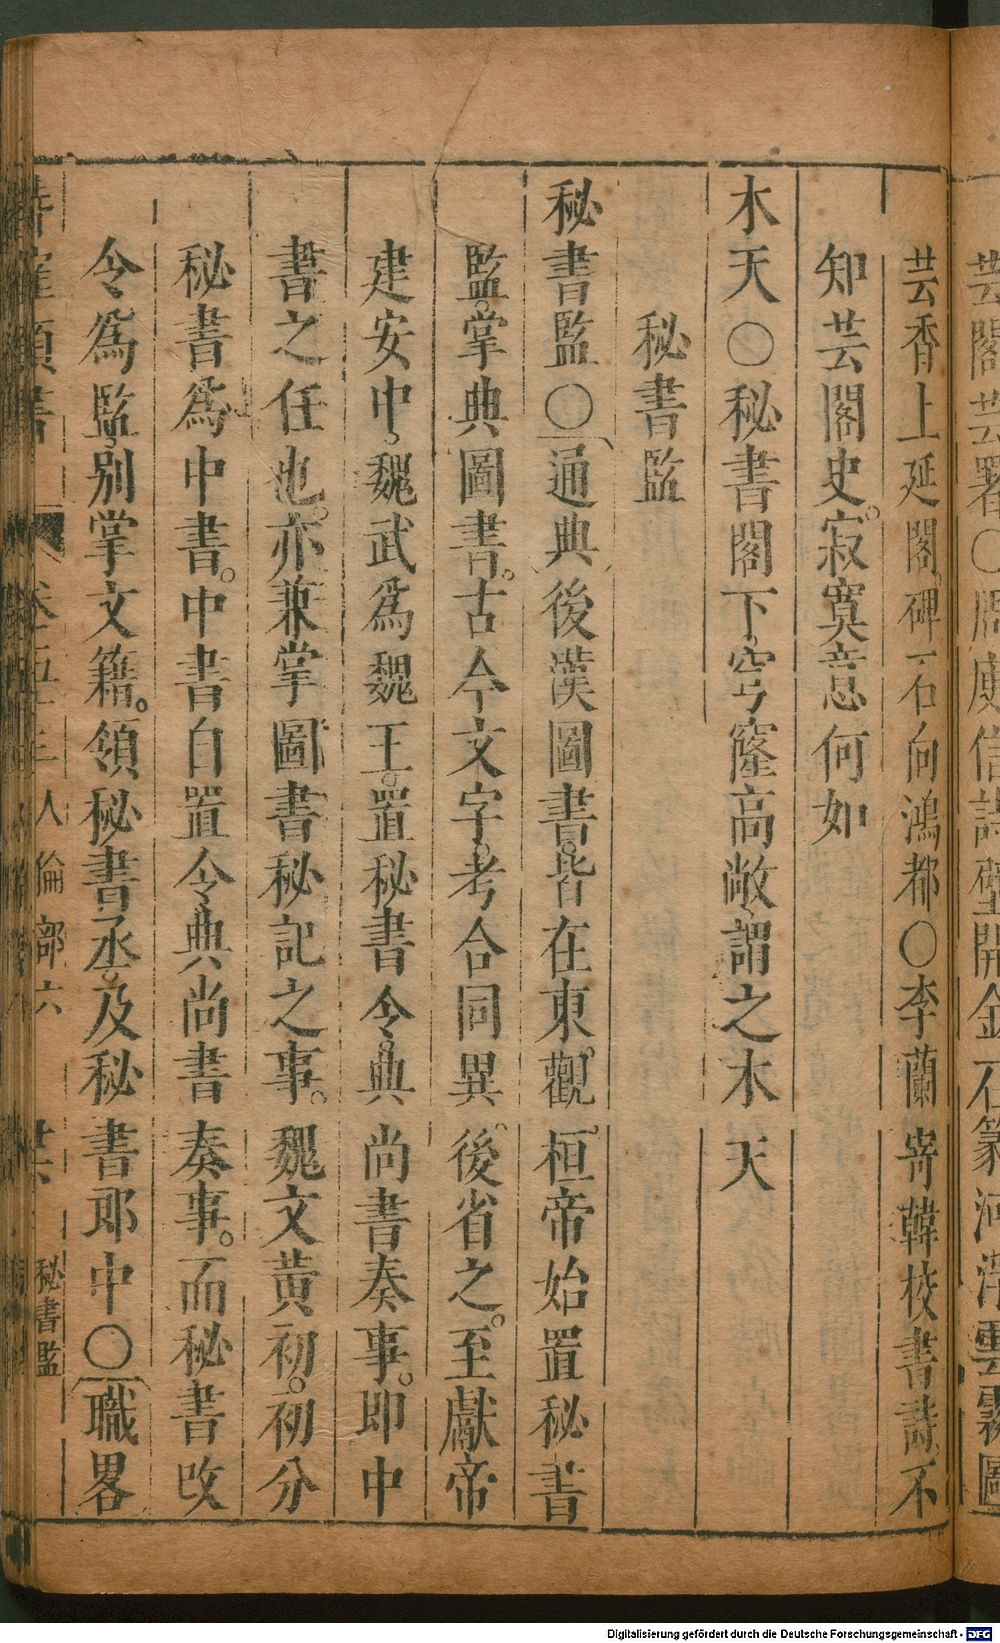 芸閣芸署○周庾信詩壁開金石篆河浮雲霧圖
芸香上延閣。碑石向鴻都○李蘭寄韓校書詩。不
知芸閣史。寂寞意何如
木天○秘書閣下。穹窿高敞。謂之木天
秘書監
秘書監○通典後漢圖書。皆在東觀。桓帝始置秘書
監。掌典圖書。古今文字。考合同異。後省之。至獻帝
建安中。魏武為魏王。置秘書令。典尚書奏事。即中
書之任也。亦兼掌圖書秘記之事。魏文黃初。初分
秘書為中書。中書自置令典尚書奏事。而秘書改
令為監。別掌文籍。領秘書丞。及秘書郎中○職畧
卷五十三 人倫部六 秘書監
Digitalisierung gefördert durch die Deutsche Forschungsgemeinschaft - DFG